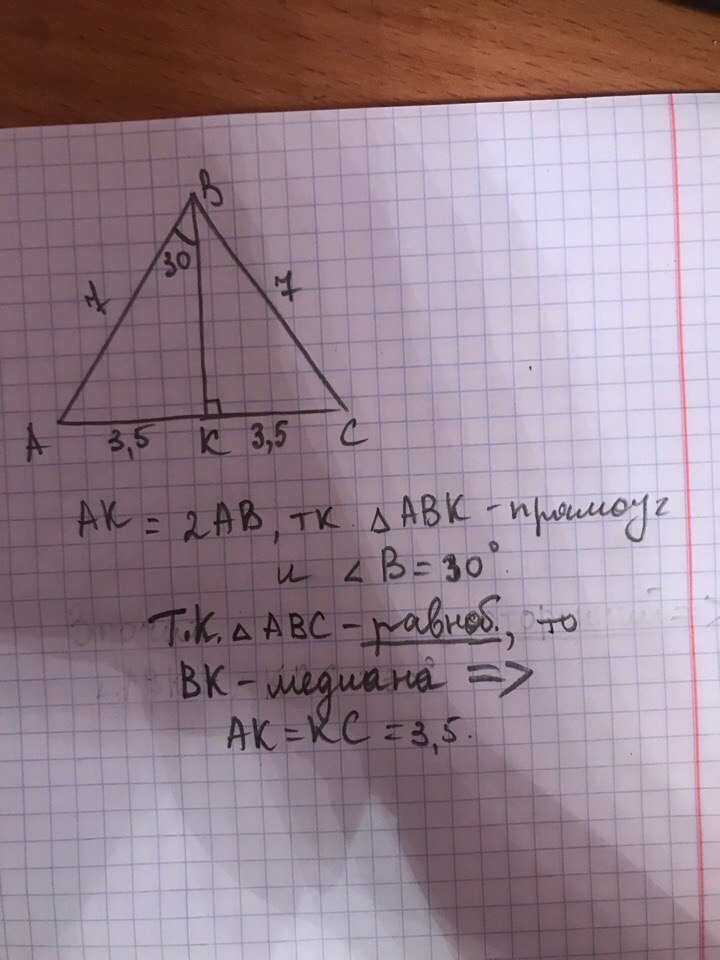 B
30
7
7
A
3,5
K
3,5
C
AK = 2AB, тк. △ABK - прямоуг
и ∠B = 30°.
Т.К. △ABC - равноб., то
BK - медиана =>
AK = KC = 3,5.